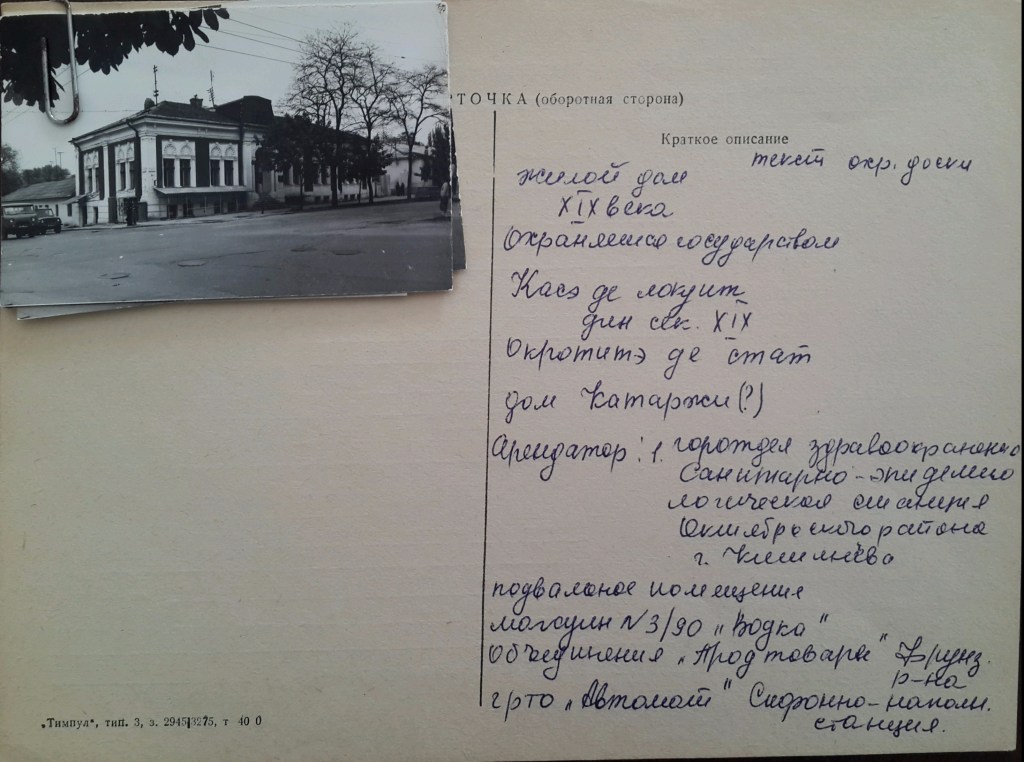 ТОЧКА (оборотная сторона)
Краткое описание
текст охр. доски
жилой дом
XIX века
Охраняется государством
Касэ де локуит
дин сек. XIX
Окротитэ де стат
дом Катаржи (?)
Арендатор: 1. горотдел здравоохранения
Санитарно-эпидемио
логическая станция
Октябрьского района
г. Кишинёва
подвальное помещение
магазин N 3/90 „Водка"
Объединения „Продтовары" Фрунз.
р-на
„Автомат" Сифонно-наполн.
станция.
„Тимпул", тип. 3, з. 2945